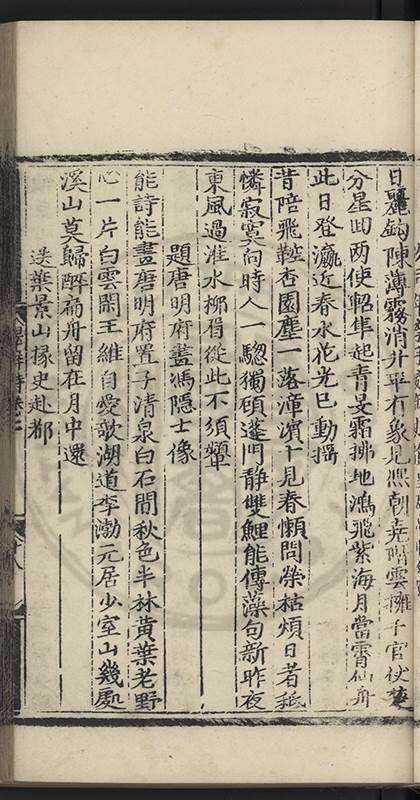 日麗鈎陳薄霧消升平有象見熙朝堯階雲擁千官仗楚
分星回兩使軺隼起青旻霜拂地鴻飛紫海月當霄仙舟
此日登瀛近春水花光已動搖
昔陪飛鞚杏園塵一落漳濱十見春懶問榮枯煩日者秪
憐寂寞向時人一驄獨碩蓬門靜雙鯉能傳藻句新昨夜
東風過淮水柳眉從此不須顰
題唐明府畫馮隱士像
能詩能畫唐明府置子清泉白石間秋色半林黄葉老野
心一片白雲閒王維自愛歌湖道李渤元居少室山幾處
溪山莫歸醉扁舟留在月中還
送葉景山掾史赴都